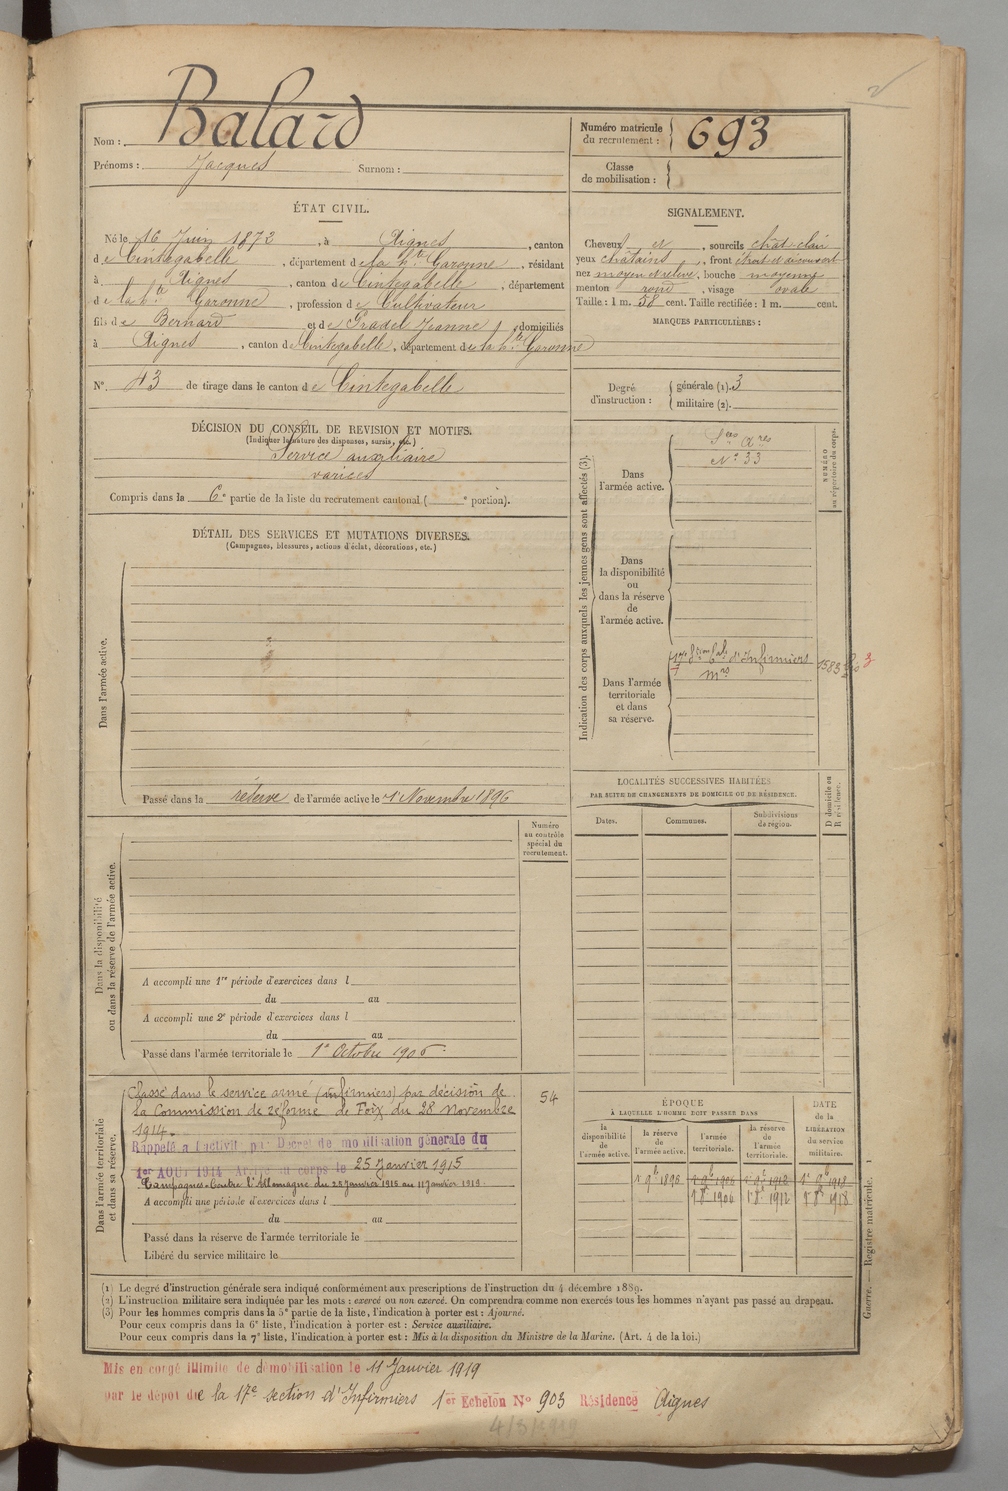 Nom : Balard
Prénoms : Jacques Surnom :
Numéro matricule du recrutement : 693
Classe de mobilisation :
ÉTAT CIVIL.
Né le 16 Juin 1872, à Aignes, canton
de Cintegabelle, département de la Hte Garonne, résidant
à Aignes, canton de Cintegabelle, département
de la Hte Garonne, profession de Cultivateur
fils de Bernard et de Pradel Jeanne, domiciliés
à Aignes, canton de Cintegabelle, département de la Hte Garonne
N° 43 de tirage dans le canton de Cintegabelle
SIGNALEMENT.
Cheveux et, sourcils chât-clair
yeux châtains, front étroit et découvert
nez moyen et relevé, bouche moyenne
menton rond, visage ovale
Taille : 1 m. 58 cent. Taille rectifiée : 1 m. cent.
MARQUES PARTICULIÈRES :
Degré d'instruction : générale (1). 3
militaire (2).
DÉCISION DU CONSEIL DE REVISION ET MOTIFS.
(Indiquer la nature des dispenses, sursis, etc.)
Service auxiliaire
varices
Compris dans la 6e partie de la liste du recrutement cantonal ( e portion).
DÉTAIL DES SERVICES ET MUTATIONS DIVERSES.
(Campagnes, blessures, actions d'éclat, décorations, etc.)
Dans l'armée active.
Passé dans la réserve de l'armée active le 1er Novembre 1896
Indication des corps auxquels les jeunes gens sont affectés (3).
NUMÉRO
au répertoire du corps.
Dans
l'armée active.
N° 33
Dans
la disponibilité
ou
dans la réserve
de
l'armée active.
Dans l'armée
territoriale
et dans
sa réserve.
17e d'Infirmiers
Mres
1583
3
LOCALITÉS SUCCESSIVES HABITÉES
PAR SUITE DE CHANGEMENTS DE DOMICILE OU DE RÉSIDENCE.
D domicile ou
R résidence.
Dates. Communes. Subdivisions
de région.
Dans la disponibilité
ou dans la réserve de l'armée active.
Numéro
au contrôle
spécial du
recrutement.
A accompli une 1re période d'exercices dans l
du au
A accompli une 2e période d'exercices dans l
du au
Passé dans l'armée territoriale le 1er Octobre 1906
Dans l'armée territoriale
et dans sa réserve.
Classé dans le service armé (infirmiers) par décision de
la Commission de réforme de Foix du 28 Novembre
1914.
54
Rappelé à l'activité par Décret de mobilisation générale du
1er AOUT 1914 Arrivé au corps le 25 Janvier 1915
Campagnes - Contre l'Allemagne du 25 janvier 1915 au 11 janvier 1919
A accompli une période d'exercices dans l
du au
Passé dans la réserve de l'armée territoriale le
Libéré du service militaire le
ÉPOQUE
À LAQUELLE L'HOMME DOIT PASSER DANS
la
disponibilité
de
l'armée active.
la réserve
de
l'armée active.
l'armée
territoriale.
la réserve
de
l'armée
territoriale.
DATE
de la
LIBÉRATION
du service
militaire.
1er 9bre 1896 1er 9bre 1906 1er 9bre 1912 1er 9bre 1918
1er 8bre 1906 1er 8bre 1912 1er 8bre 1918
Guerre. — Registre matricule. 1
(1) Le degré d'instruction générale sera indiqué conformément aux prescriptions de l'instruction du 4 décembre 1889.
(2) L'instruction militaire sera indiquée par les mots : exercé ou non exercé. On comprendra comme non exercés tous les hommes n'ayant pas passé au drapeau.
(3) Pour les hommes compris dans la 5e partie de la liste, l'indication à porter est : Ajourné.
Pour ceux compris dans la 6e liste, l'indication à porter est : Service auxiliaire.
Pour ceux compris dans la 7e liste, l'indication à porter est : Mis à la disposition du Ministre de la Marine. (Art. 4 de la loi.)
Mis en congé illimité de démobilisation le 11 Janvier 1919
par le dépôt de la 17e section d'Infirmiers 1er Echelon N° 903 Résidence Aignes